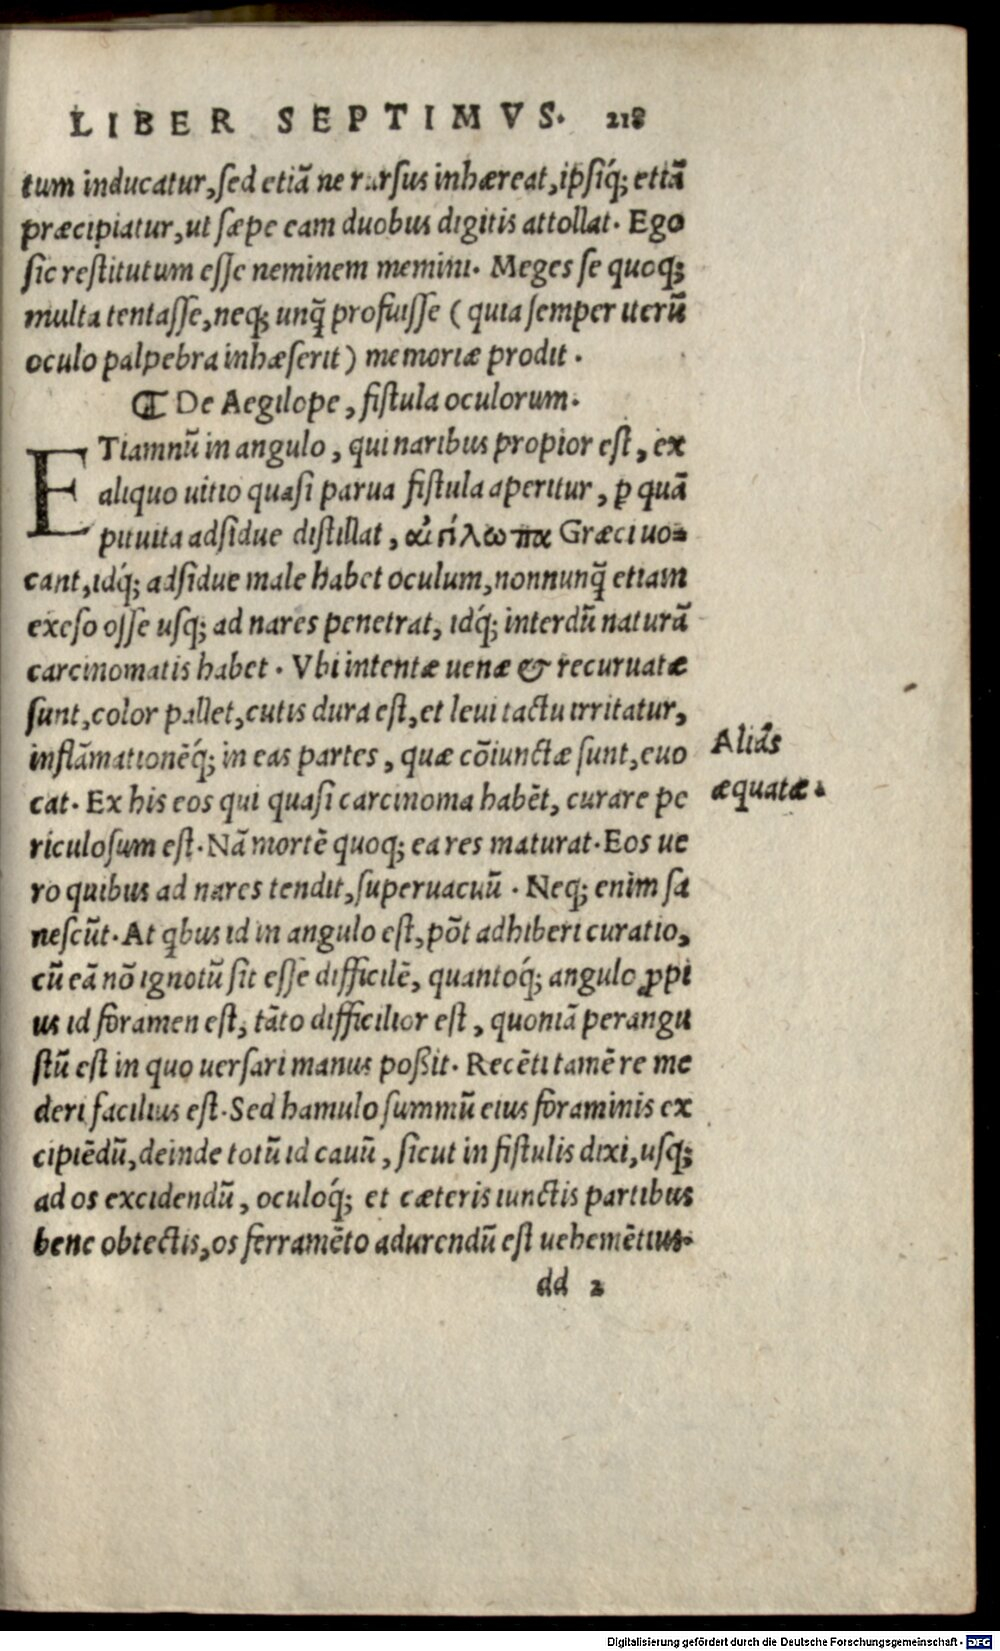 LIBER SEPTIMVS. 218
tum inducatur, sed etiā ne rursus inhæreat, ipsiq́; etiā
præcipiatur, ut sæpe eam duobus digitis attollat. Ego
sic restitutum esse neminem memini. Meges se quoq;
multa tentasse, neq; unq̄ profuisse (quia semper iterū
oculo palpebra inhæserit) memoriæ prodit.
¶ De Aegilope, fistula oculorum.
ETiamnū in angulo, qui naribus propior est, ex
aliquo uitio quasi parua fistula aperitur, ꝑ quā
pituita adsidue distillat, αἰγίλωπα Græci uo-
cant, idq́; adsidue male habet oculum, nonnunq̄ etiam
exeso osse usq; ad nares penetrat, idq́; interdū naturā
carcinomatis habet. Vbi intentæ uenæ & recuruatæ
sunt, color pallet, cutis dura est, et leui tactu irritatur,
inflāmationēq́; in eas partes, quæ cōiunctæ sunt, euo
cat. Ex his eos qui quasi carcinoma habēt, curare pe
riculosum est. Nā mortē quoq; ea res maturat. Eos ue
ro quibus ad nares tendit, superuacuū. Neq; enim sa
nescūt. At qbus id in angulo est, pōt adhiberi curatio,
cū eā nō ignotū sit esse difficilē, quantoq́; angulo ꝓpi
us id foramen est, tāto difficilior est, quoniā perangu
stū est in quo uersari manus poßit. Recēti tamē re me
deri facilius est. Sed hamulo summū eius foraminis ex
cipiēdū, deinde totū id cauū, sicut in fistulis dixi, usq;
ad os excidendū, oculoq́; et cæteris iunctis partibus
bene obtectis, os ferramēto adurendū est uehemētius.
dd 2
Aliâs
æquatæ.
Digitalisierung gefördert durch die Deutsche Forschungsgemeinschaft - DFG